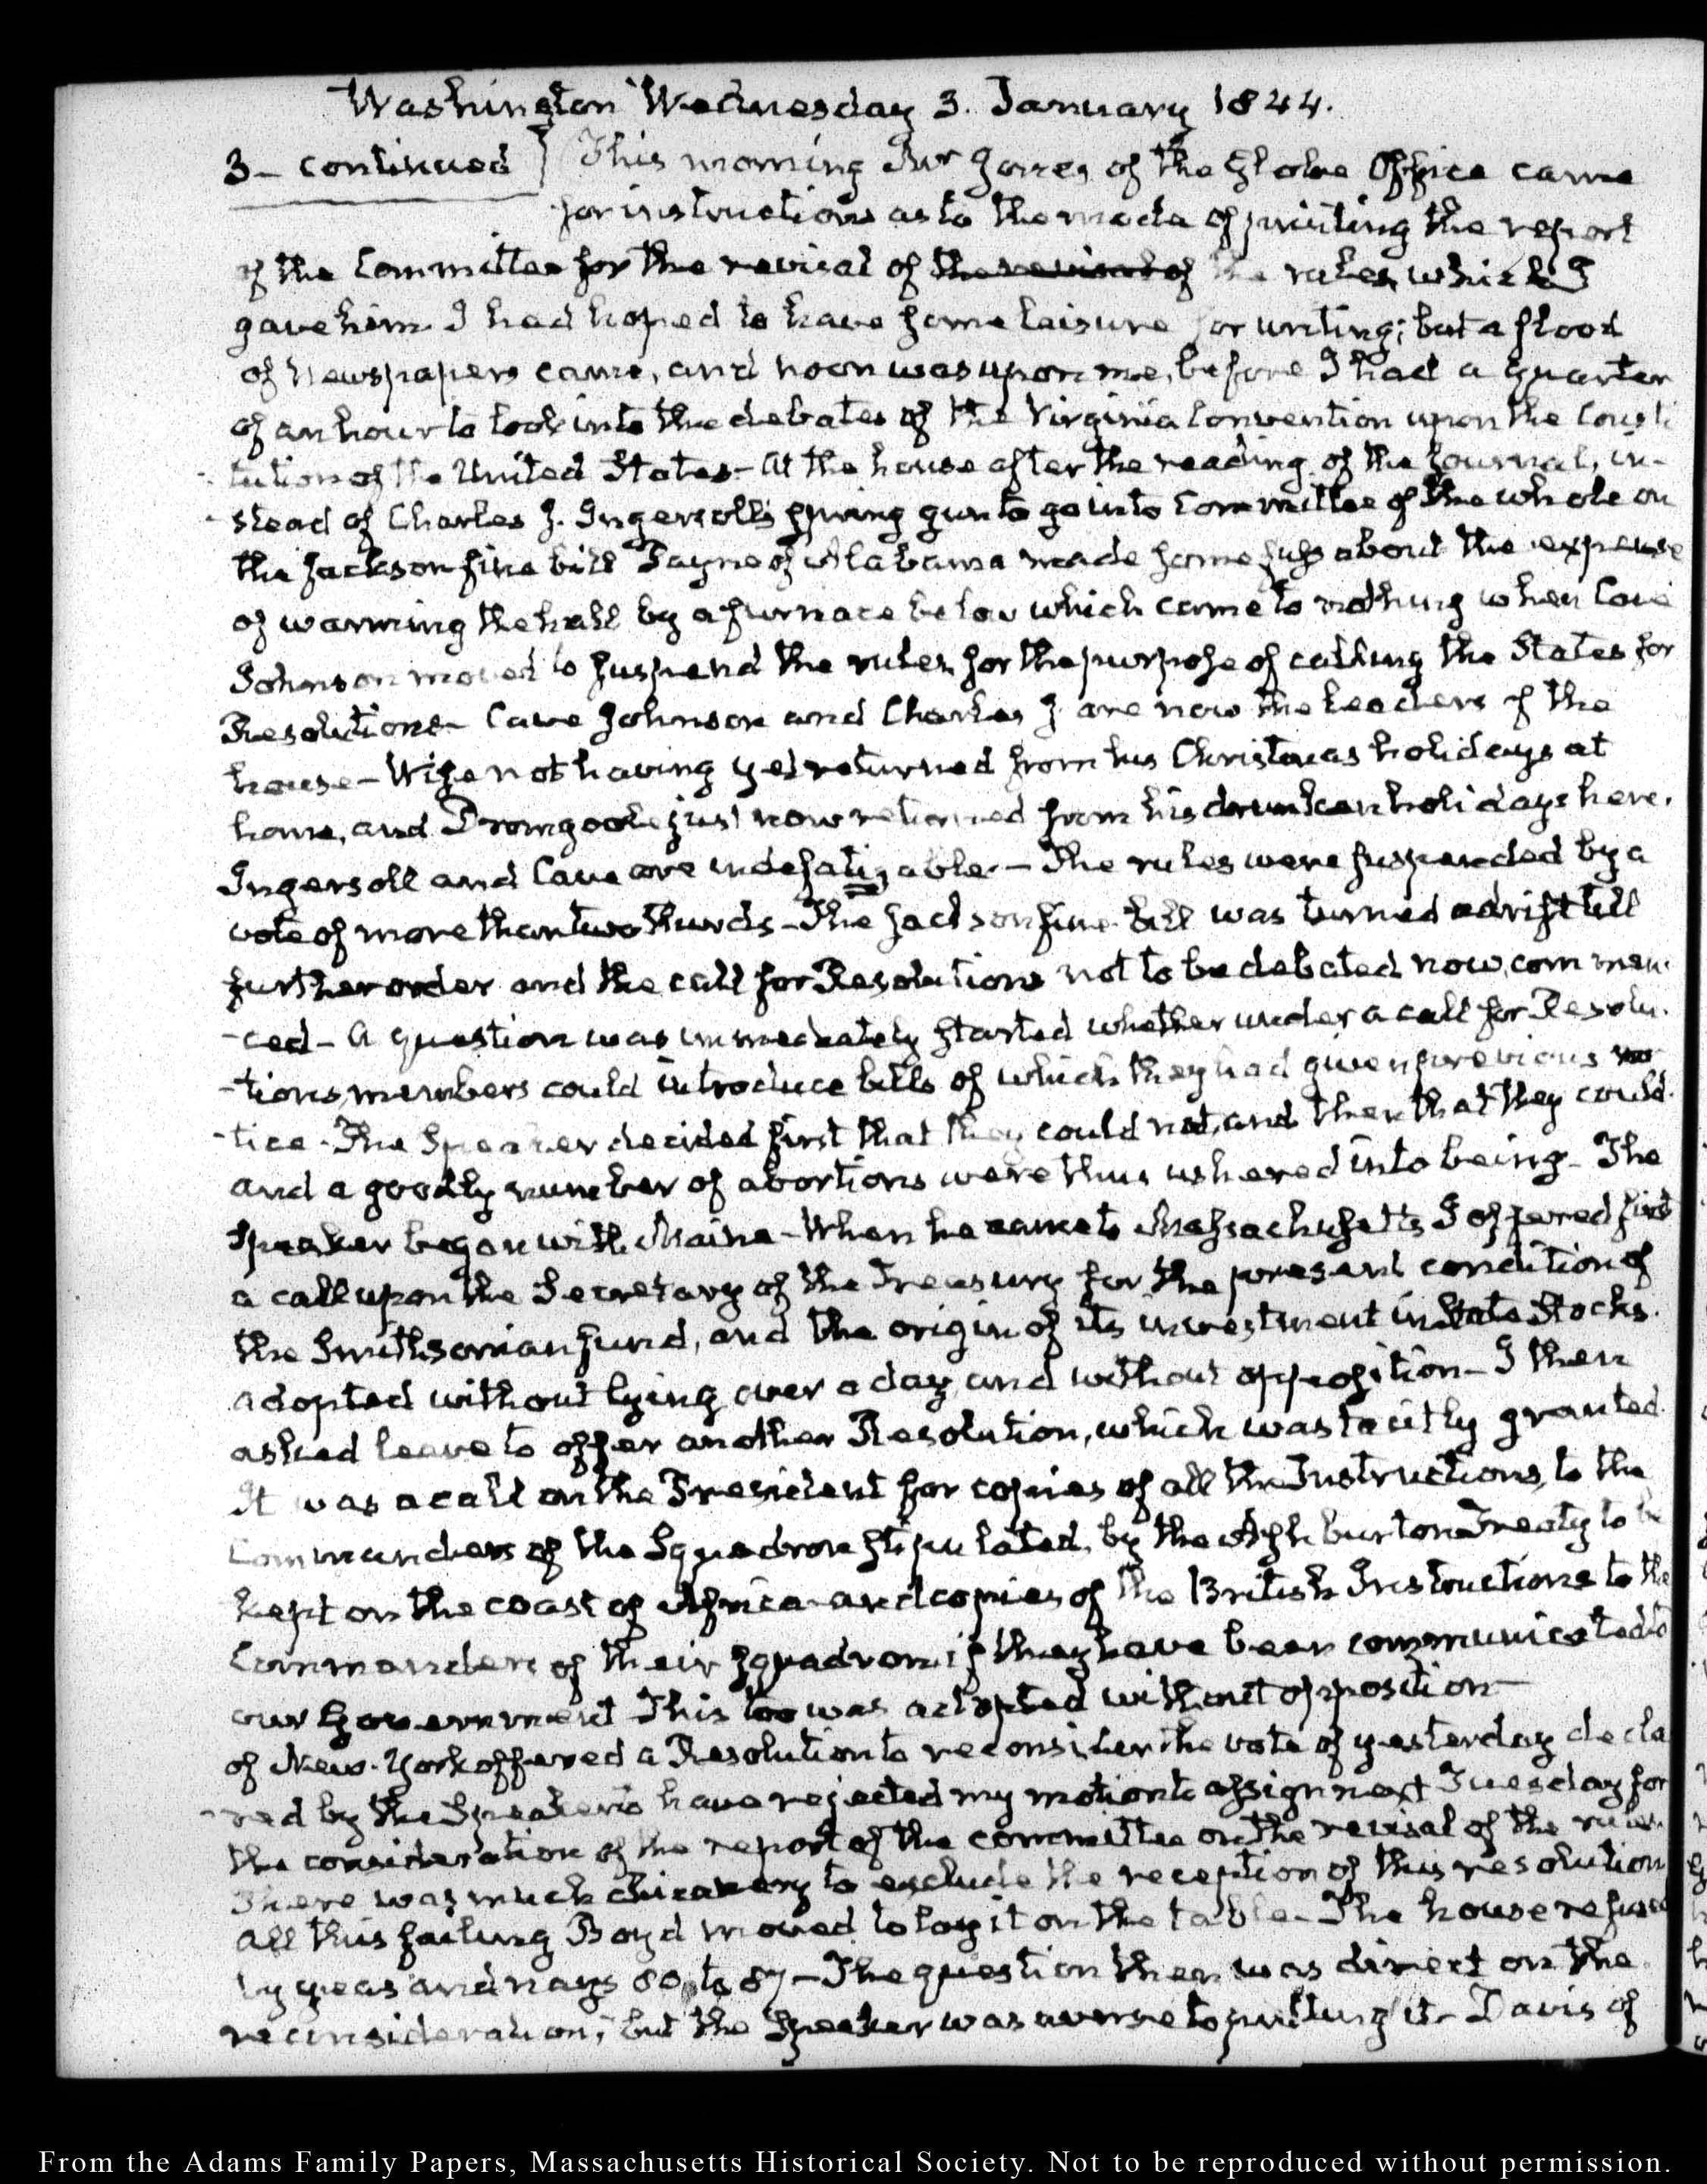 Washington Wednesday 3. January 1844.
3 – continued } This morning Mr Jones, of the Globe Office came
for instructions as to the mode of printing the report
of the Committee for the revisal of the revisal of the rules, which I
gave him. I had hoped to have some leisure for writing; but a flood
of Newspapers came, and noon was upon me, before I had a quarter
of an hour to look into the debates of the Virginia Convention upon the Consti
tution of the United States – At the house after the reading of the Journal, in-
-stead of Charles J. Ingersoll's spring gun to go into Committee of the whole on
the Jackson fine bill Payne of Alabama made some fuss about the expense
of warming the hall by a furnace below which came to nothing when Cave
Johnson moved to suspend the rules, for the purpose of calling the States for
Resolutions – Cave Johnson and Charles J. are now the leaders of the
house – Wise not having yet returned from his Christmas holidays at
home, and Dromgoole just now returned from his drunken holidays here.
Ingersoll and Cave are indefatigable. – The rules were suspended by a
vote of more than two thirds – The Jackson fine bill was turned adrift till
further order and the call for Resolutions not to be debated now, commen
-ced – A question was immediately started whether under a call for Resolu-
-tions, members could introduce bills of which they had given previous no
-tice – The Speaker decided first that they could not, and then that they could.
and a goodly number of abortions were thus ushered into being – The
Speaker began with Maine – When he came to Massachusetts I offered first
a call upon the Secretary of the Treasury for the present condition of
the Smithsonian fund, and the origin of its investment in State Stocks.
adopted without lying over a day, and without opposition – I then
asked leave to offer another Resolution, which was tacitly granted.
It was a call on the President for copies of all the Instructions, to the
Commanders of the Squadron stipulated, by the Ashburton Treaty to be
kept on the coast of Africa – and copies of the British Instructions to the
Commanders of their squadron if they have been communicated to
our Government This too was adopted without opposition –
of New-York offered a Resolution to reconsider the vote of yesterday decla
-red by the Speaker to have rejected my motion to assign next Tuesday for
the consideration of the report of the committee on the revisal of the rules.
There was much chicanery to exclude the reception of this resolution
All this failing Boyd moved to lay it on the table – The house refused
by yeas and nays 80 to 87 – The question then was direct on the
reconsideration; but the Speaker was averse to putting it – Davis of
From the Adams Family Papers, Massachusetts Historical Society. Not to be reproduced without permission.